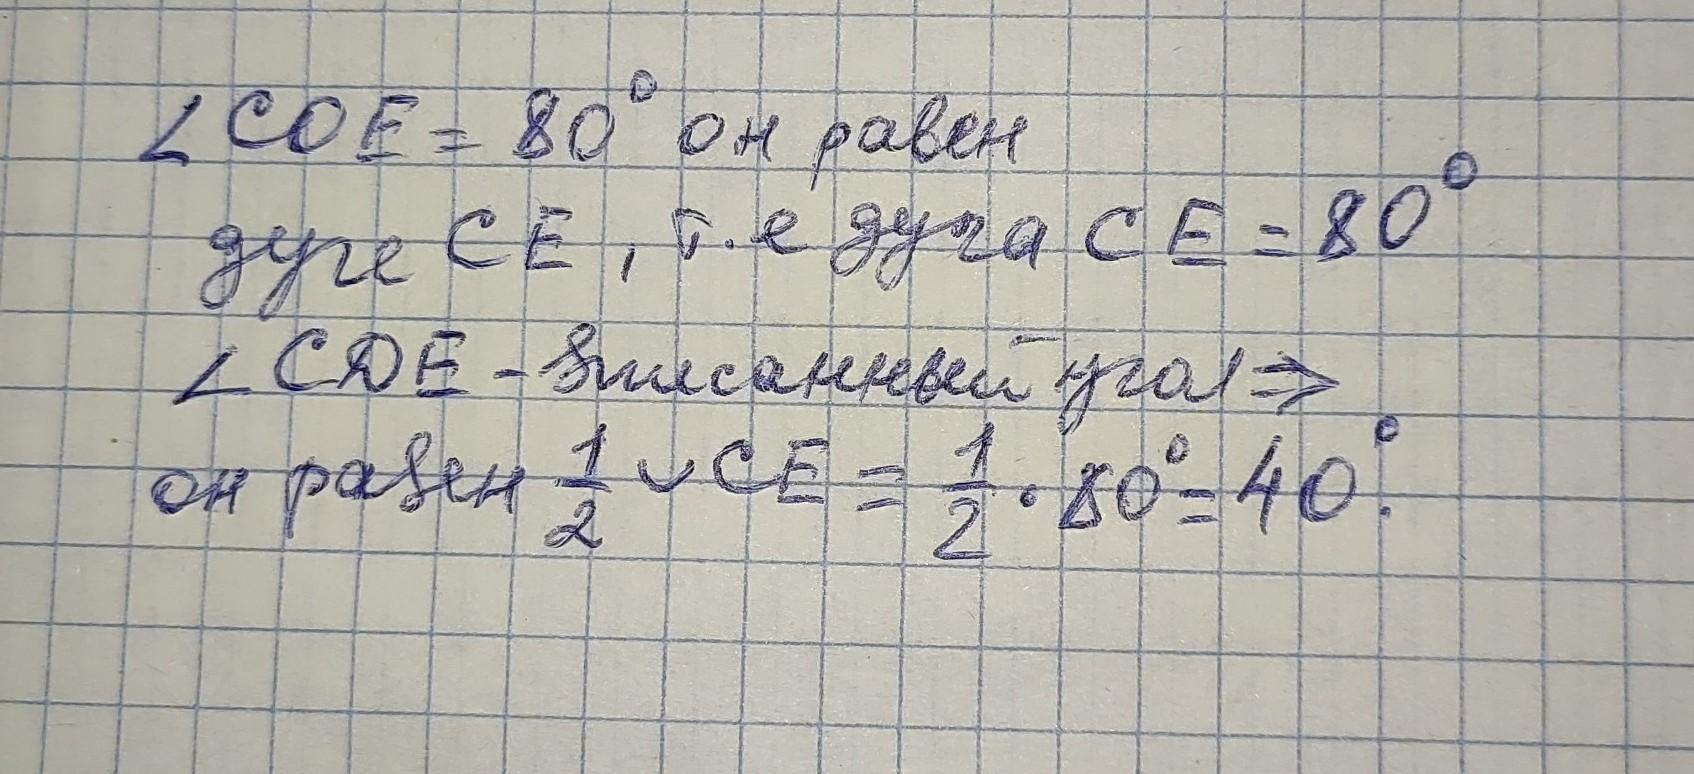 ∠COE = 80° он равен
дуге CE, т.е дуга CE = 80°
∠CDE - вписанный угол ⇒
он равен 1/2 ◡CE = 1/2 · 80° = 40°.